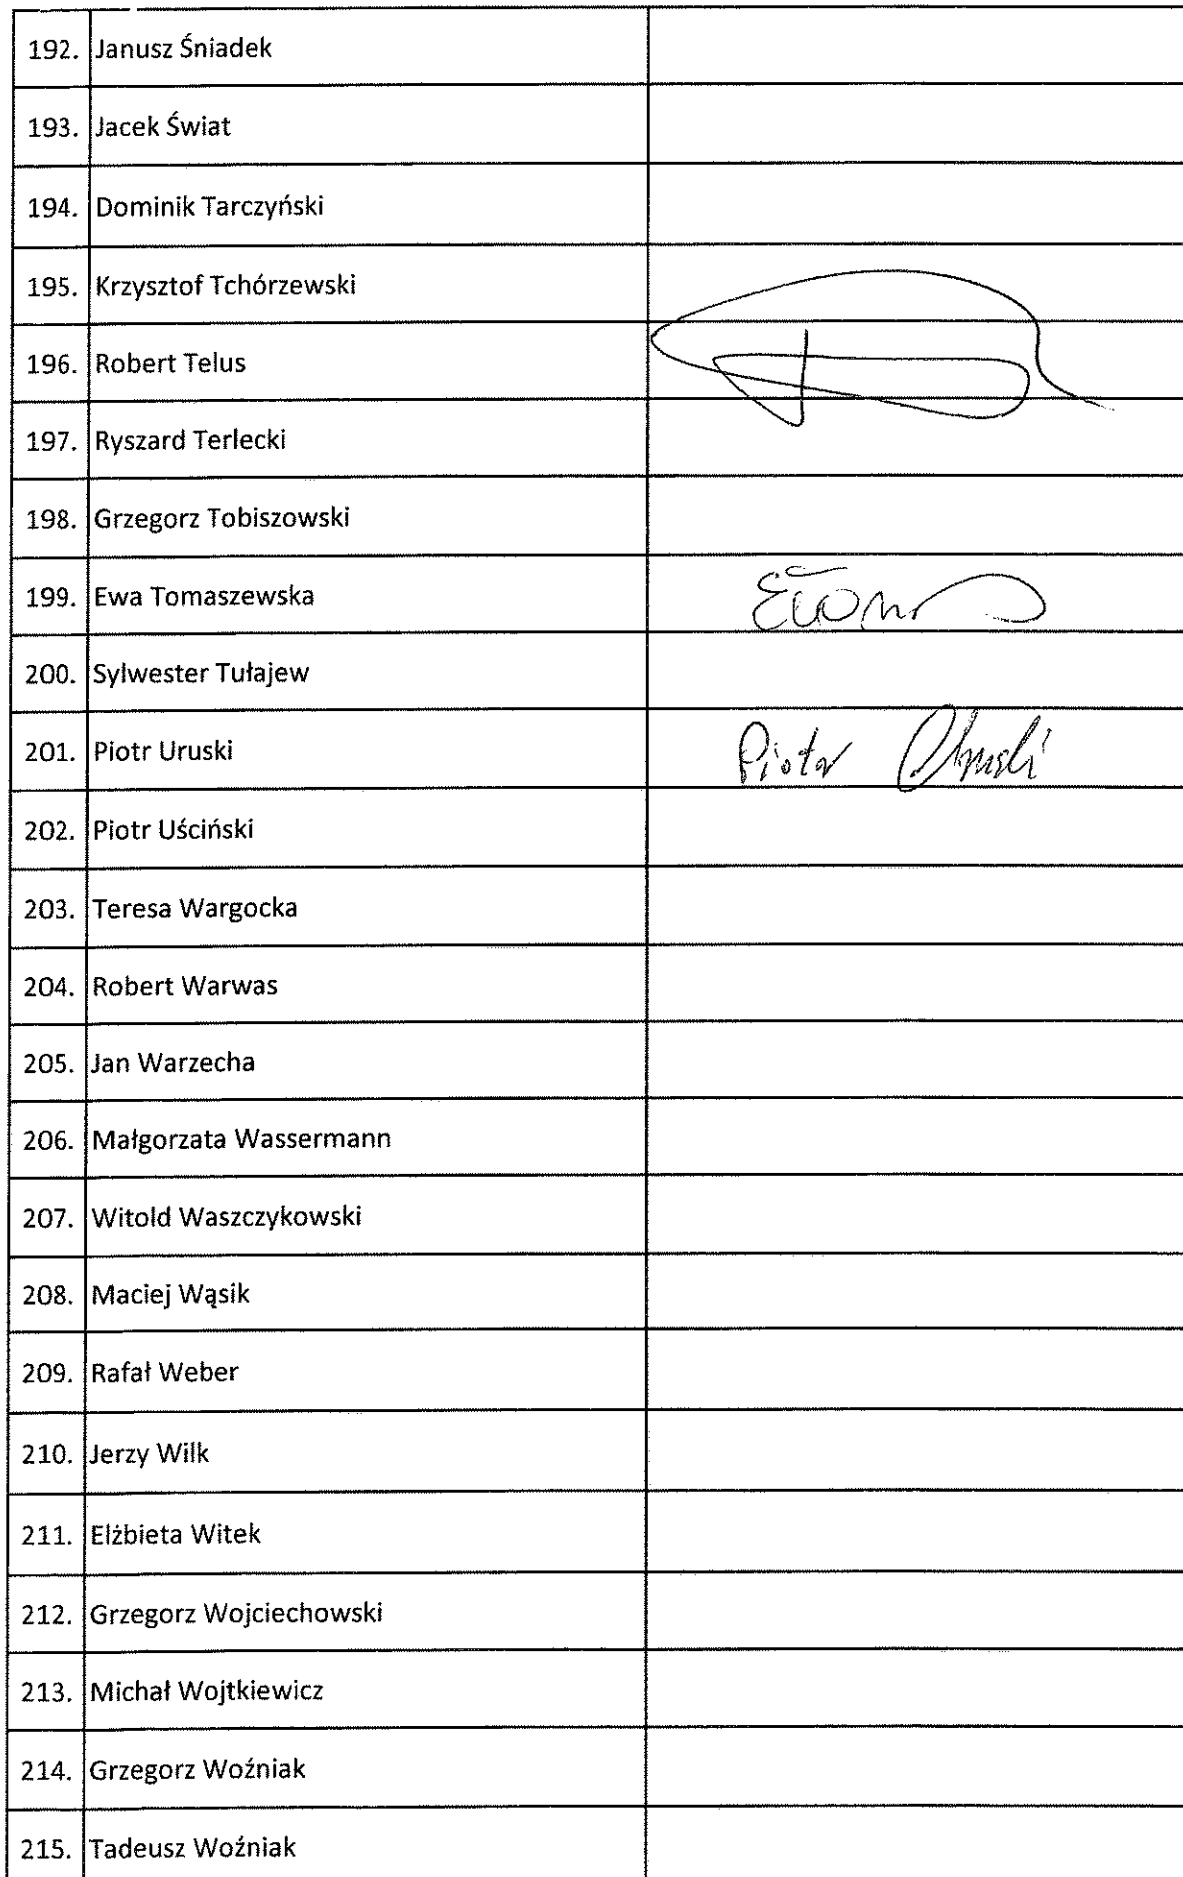 192. Janusz Śniadek
193. Jacek Świat
194. Dominik Tarczyński
195. Krzysztof Tchórzewski
196. Robert Telus
197. Ryszard Terlecki
198. Grzegorz Tobiszowski
199. Ewa Tomaszewska
200. Sylwester Tułajew
201. Piotr Uruski Piotr
202. Piotr Uściński
203. Teresa Wargocka
204. Robert Warwas
205. Jan Warzecha
206. Małgorzata Wassermann
207. Witold Waszczykowski
208. Maciej Wąsik
209. Rafał Weber
210. Jerzy Wilk
211. Elżbieta Witek
212. Grzegorz Wojciechowski
213. Michał Wojtkiewicz
214. Grzegorz Woźniak
215. Tadeusz Woźniak